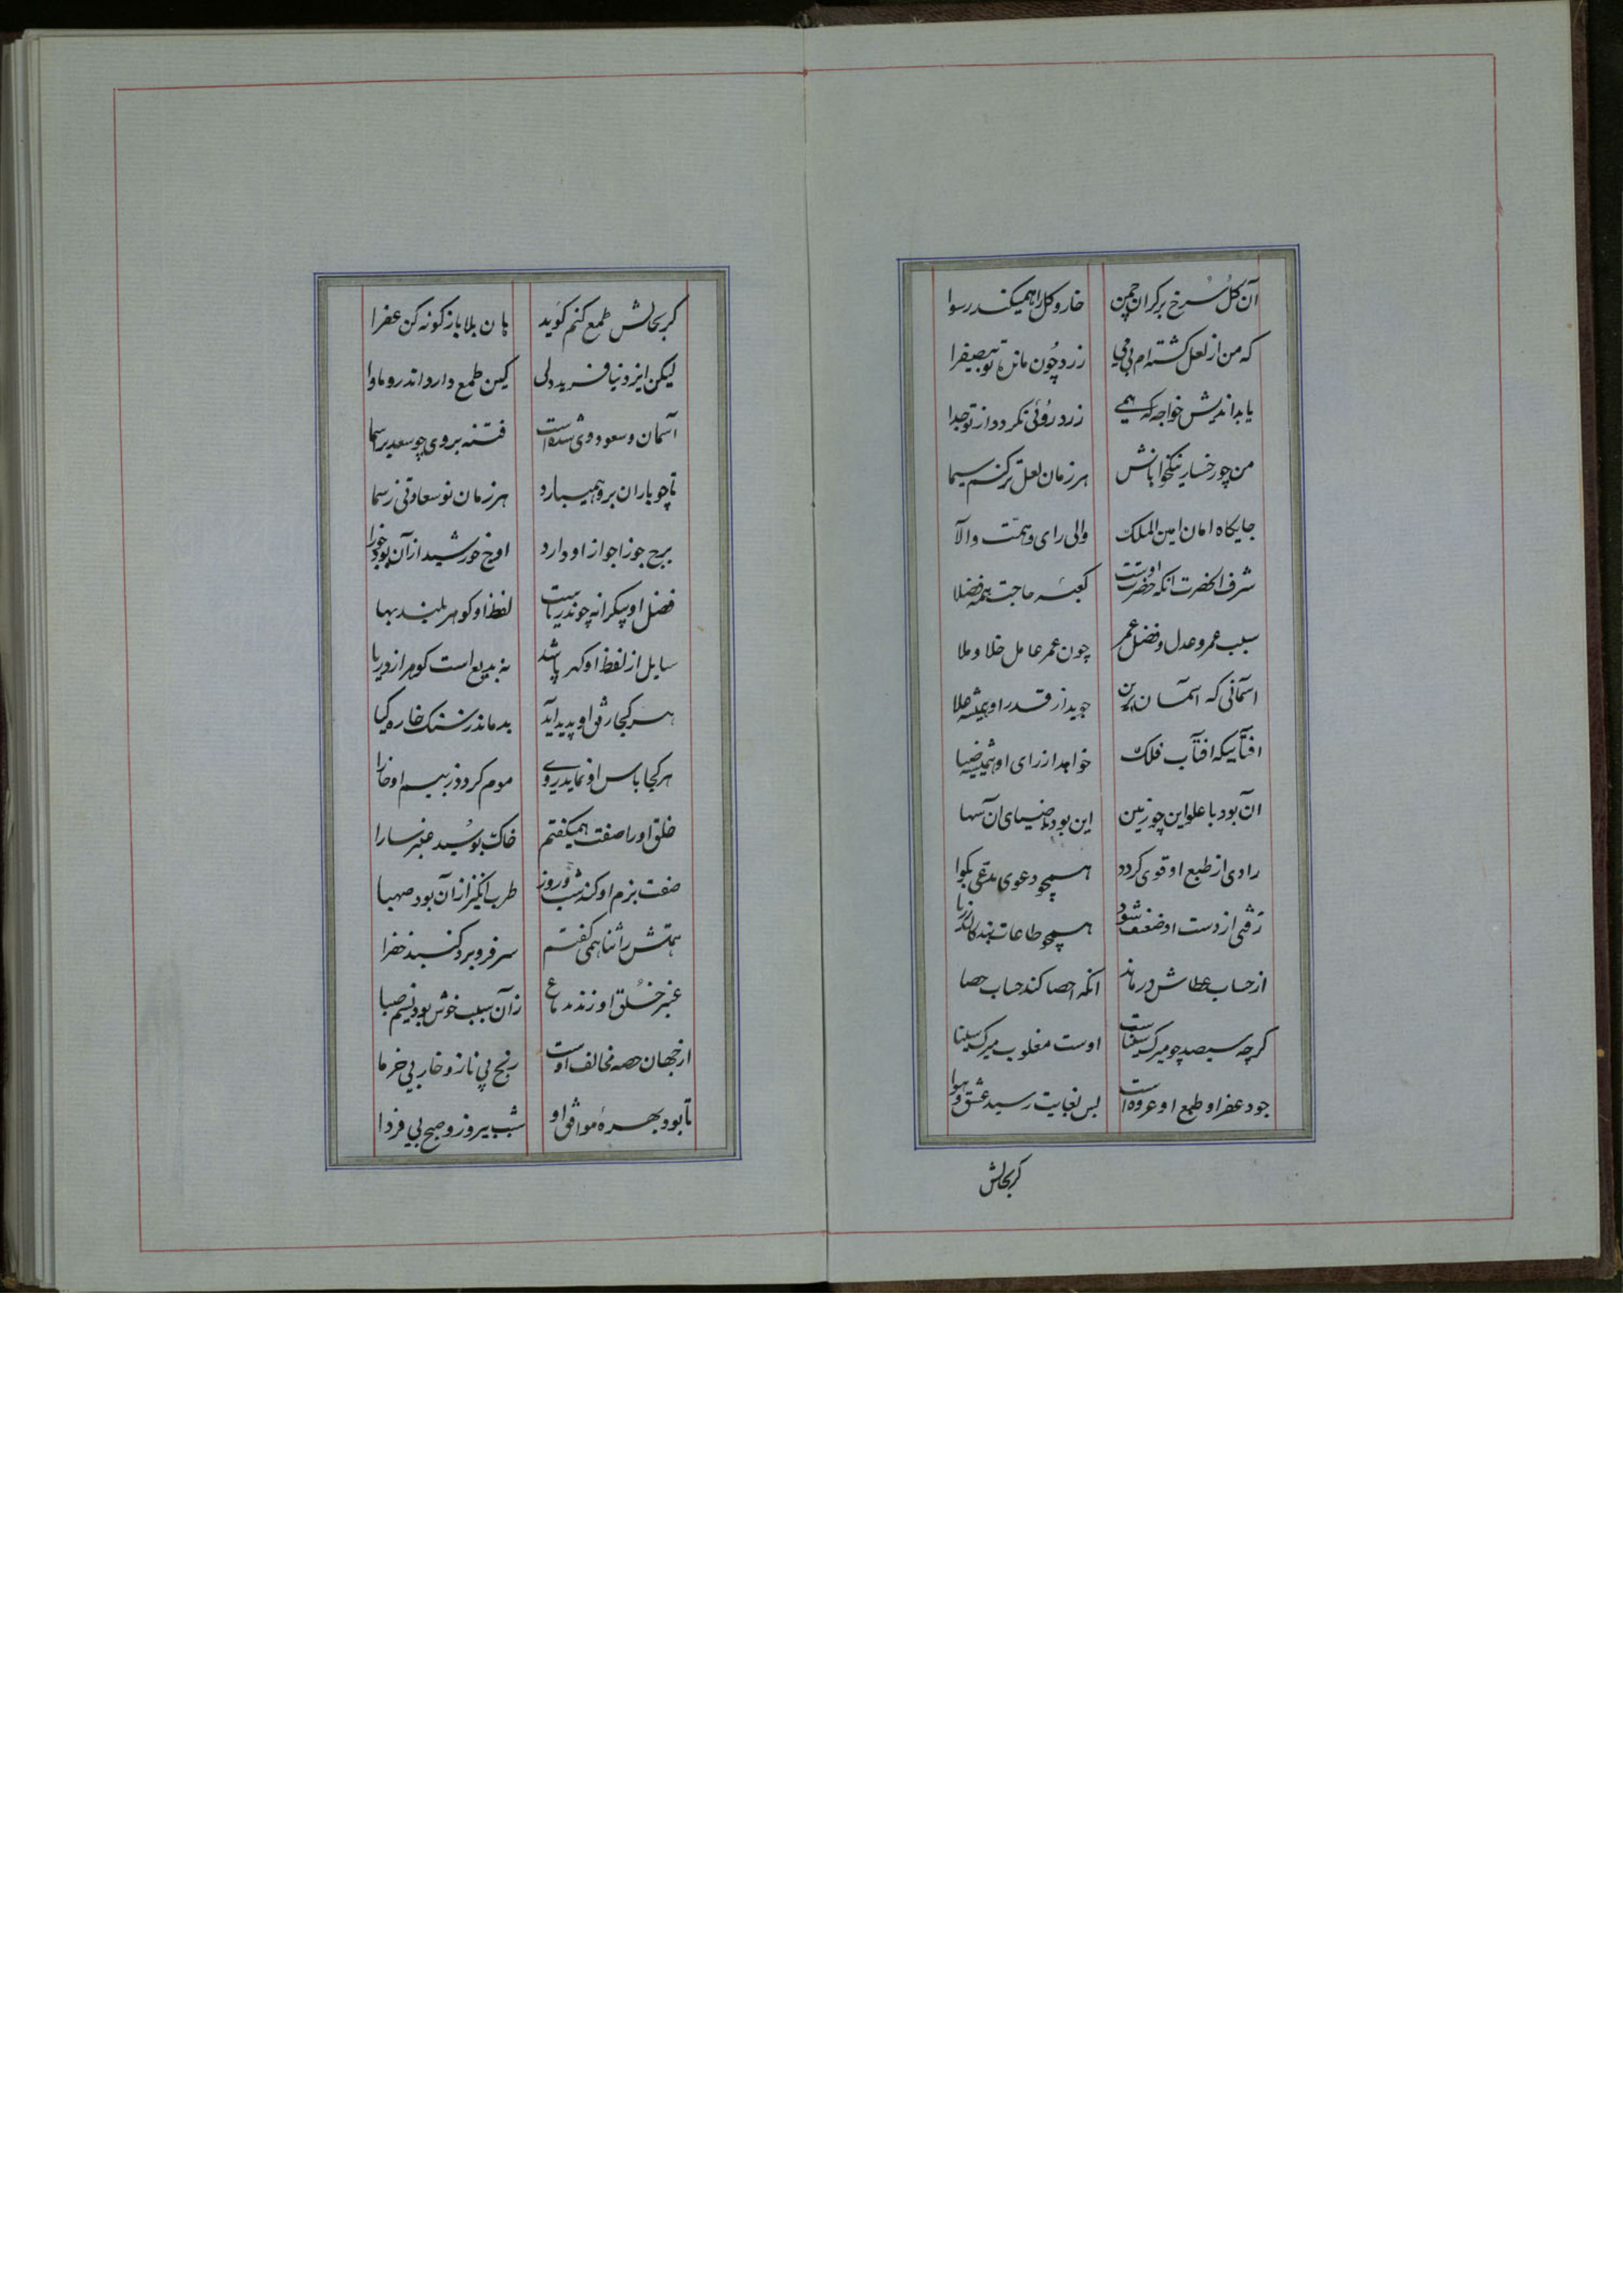 آن کل سرخ برکران چمن خار و کل را همیکند رسوا
که من از لعل کشته‌ام بی می زرد چون مانده تو بیصفرا
یا بداندیش خواجه که همی زرد روئی نکردد از تو جدا
من چو رخسار نیکخواهانش هر زمان لعل‌تر کنم سیما
جایکاه امان امین الملک والی رای و همت والا
شرف الحضرت انکه حضرت اوست کعبه حاجت همه فضلا
سبب عمر و عدل و فضل عمر چون عمر عامل خلا و ملا
اسمانی که اسمان برین جوید از قدر او همیشه علا
افتابیکه افتاب فلک خواهد از رای او همیشه ضیا
ان بود با علو این چو زمین این بود با ضیای ان سها
رادی از طبع او قوی کردد همچو دعوی مدعی بکوا
زفتی از دست او ضعیف شود همچو طاعات بندکان ز ریا
از حساب عطاش درماند انکه احصا کند حساب حصا
کرچه سیصد چو میرک سیناست اوست مغلوب میرک سینا
جود عفرا و طمع او عروه است بس بغایت رسید عشق و هوا
کر بخالش
کر بخالش طمع کنم کوید هان بلا باز کونه کن عفرا
لیکن ایزد نیافرید دلی کین طمع دارد اندرو ماوا
آسمان و سعود وی شده است فتنه بروی چو سعد بر اسما
تا چو باران برو همیبارد هر زمان نو سعادتی ز سما
برج جوزا جواز او دارد اوج خورشید از آن بود جوزا
فضل او بیکرانه چون دریاست لفظ او کوهر بلند بها
سایل از لفظ او کهر پاشد نه بدیع است کوهر از دریا
هر کجا رفق او پدید آید بدماند ز سنک خاره کیا
هر کجا باس او نماید روی موم کردد ز بیم او خارا
خلق او را صفت همیکفتم خاک بوسید عنبر سارا
صفت بزم او کند شب و روز طرب‌انکیز از آن بود صهبا
همتش را ثنا همی کفتم سر فرو برد کنبد خضرا
عنبر خلق او زند بدماغ زآن سبب خوش بود نسیم صبا
از جهان حصه مخالف اوست رنج بی ناز و خار بی خرما
تا بود بهره موافق او شب بیروز و صبح بی فردا